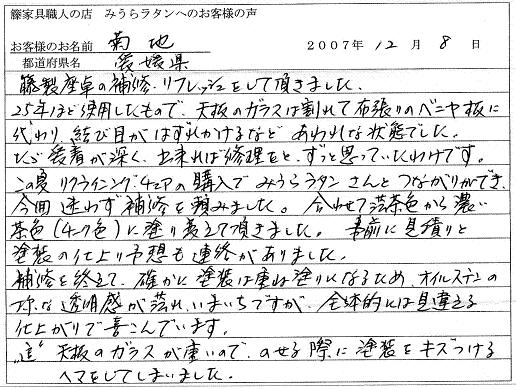 籐家具職人の店 みうらラタンへのお客様の声
お客様のお名前 菊地 2007年12月8日
都道府県名 愛媛県
籐製座卓の補修・リフレッシュをして頂きました。
25年ほど使用したもので、天板のガラスは割れて布張りのベニヤ板に
代わり、結び目がはずれかけるなど あわれな状態でした。
ただ愛着が深く、出来れば修理をと、ずっと思っていたわけです。
この夏 リクライニングチェアの購入で みうらラタンさんとつながりができ、
今回 迷わず補修を頼みました。合わせて 薄茶色から濃い
茶色(4-ク色)に塗り変えて頂きました。事前に見積りと
塗装の仕上り予想も連絡がありました。
補修を終えて、確かに塗装は重ね塗りになるため、オイルステンの
様な透明感が薄れ、いまいちですが、全体的には見違える
仕上がりで喜こんでいます。
"追" 天板のガラスが重いので、のせる際に塗装をキズつける
ヘマをしてしまいました。